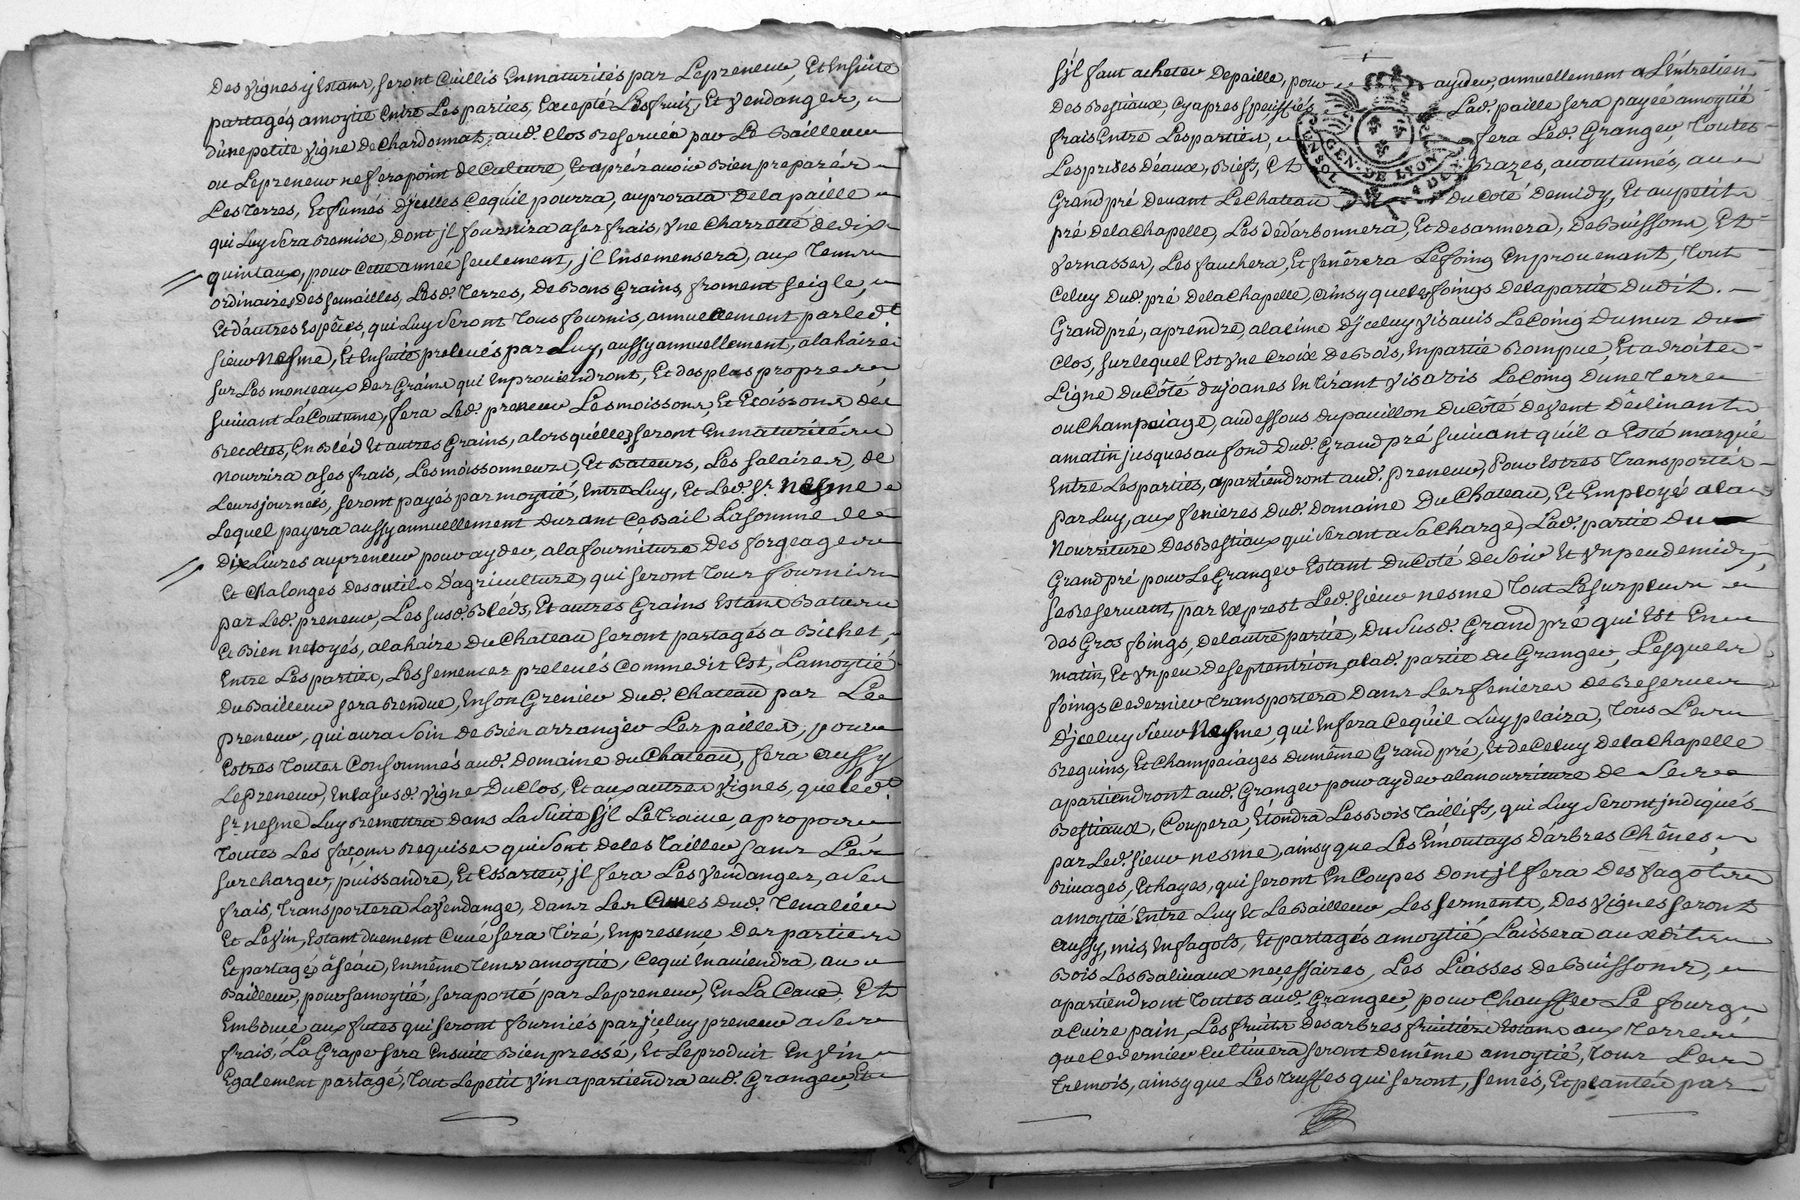 Des Vignes y Estans, seront Cuillis En maturités par Le preneur, Et Ensuite
partagés amoytié Entre Les parties, Excepté Les fruits, Et Vendanges,
d'une petite vigne de Chardonnat, aud. Clos Reservée par Le Bailleur
ou Le preneur ne fera point de Culture, Et aprés avoir Bien preparés
Les Terres, Et fumés d'jcelles Ce qu'il pourra, au prorata De la paille
qui Luy sera Promise, dont jl fournira a ses frais, Vne Charrette de dix
quintaux, pour Cette année seulement, jl Ensemensera, aux Tems
ordinaires des semailles, Lesd. Terres, De Bons Grains, froment seigle,
Et d'autres Espêces, qui Luy seront Tous fournis, annuellement par led.t
sieur Nesme, Et Ensuite prelevés par Luy, aussy annuellement, a la haire
sur Les monceaux des Grains qui En proviendront, Et des plus propres
suivant La Coutume, fera Led. preneur Les moissons, Et Ecoissons des
Recoltes, En Bléd Et autres Grains, alors qu'elles seront En maturités
Nourrira a ses frais, Les moissonneurs, Et Bateurs, Les salaires, de
Leurs journées, seront payés par moytié, Entre Luy, Et Led. Sr. Nesme
Lequel payera aussy annuellement durant Ce Bail La somme de
Dix Livres au preneur pour ayder, a la fourniture Des forgeages
Et Chalonges des outils D'agriculture, qui seront Tous fournis
par Led. preneur, Les susd. Bléds, Et autres Grains Estans Batus
Et Bien netoyés, a la haire Du Chateau seront partagés a Bichet,
Entre Les parties, Les semences prelevés Comme dit Est, La moytié
Du Bailleur sera Rendue, En son Grenier Dud. Chateau par Le
preneur, qui aura soin de Bien arranger Les pailles, pour
Estres Toutes Consommés aud. Domaine du Chateau, fera aussy
Le Preneur, En la susd. vigne Du Clos, Et aux autres vignes, que led.t
Sr. nesme Luy Remettra Dans La suite s'jl Le Trouve, a propos
Toutes Les façons Requises qui sont de les Tailler sans Les
surcharger, puissandre, Et Essarter, jl fera Les Vendanges, a ses
frais, Transportera La Vendange, Dans Les Cuves Dud. Tenalier
Et Le Vin, Estant duement Cuvé sera Tiré, En presence Des parties
Et partagé, à seau, En même Tems amoytié, Ce qui En aviendra, au
Bailleur, pour sa moytié, sera porté par Le preneur, En La Cave, Et
Emboué aux futes qui seront fourniés par jceluy preneur a ses
frais, La Grape sera Ensuite Bien pressé, Et Le produit En Vin
Egalement partagé, Tout Le petit Vin apartiendra aud. Granger, Et
s'jl faut acheter De paille, pour ayder, annuellement a L'entretien
Des Bestiaux, Cy apres speciffiés Lad. paille sera payée amoytié
frais Entre Les parties, fera Led. Granger, Toutes
Les prises D'éaux, Biefs, Et Razes, accoutumés, au
Grand pré devant Le Chateau du Coté De midy, Et au petit
pré De la Chapelle, Les dédarbonnera, Et desarmera, De Buissons, Et
Vernasses, Les fauchera, Et fenêrera Le foing En provenant, Tout
Celuy Dud. pré De la Chapelle, ainsy que les foings De la partie Dudit
Grand pré, a prendre, a la Cime d'jceluy Vis avis Le Coing Du mur Du
Clos, sur lequel Est Vne Croix de Bois, En partie Rompue, Et a droite
Ligne Du Côté du joanes En Tirant Vis a Vis Le Coing D'une Terre
ou Champeiage, au dessous du pavillon Du Côté de Vent Déclinant
a matin jusques au fond Dud. Grand pré suivant qu'il a Esté marqué
Entre Les parties, apartiendront aud. Preneur, Pour Estres Transportés
par Luy, aux fenieres Dud. Domaine Du Chateau, Et Employé a la
Nourriture Des Bestiaux qui seront a sa Charge, Lad. partie Du
Grand pré pour Le Granger Estant Du Coté de soir Et Vn peu de midy,
se Reservant, par Exprest Led. sieur nesme Tout Le surplus
des Gros foings, de l'autre partie, Du susd. Grand pré qui Est En
matin, Et Vn peu De septentrion, a lad. partie du Granger, Lesquels
foings Ce dernier Transportera Dans Les fenieres De Reserves
D'jceluy sieur Nesme, qui En fera Ce qu'il Luy plaira, Tous Les
Reguins, Et Champeiages Du même Grand pré, Et de Celuy De la Chapelle
apartiendront aud. Granger pour ayder a la nourriture de ses
Bestiaux, Coupera, Etondra Les Bois Taillifs, qui Luy seront jndiqués
par Led. sieur nesme, ainsy que Les Emoutays D'arbres Chênes,
Rivages, Et hayes, qui seront En Coupes Dont jl fera Des fagots
amoytié Entre Luy Et Le Bailleur, Les serments, Des Vignes seront
aussy, mis, En fagots, Et partagés amoytié, Laissera auxdits
Bois Les Balivaux necessaires, Les Liasses de Buissons,
apartiendront Toutes aud. Granger, pour Chauffer Le fourg
a Cuire pain, Les fruits des arbres fruitiers Estans aux Terres
que Ce dernier Cultivera seront de même amoytié, Tous Les
Tremois, ainsy que Les Truffes qui seront, semés, Et plantés par
GEN. DE LYON